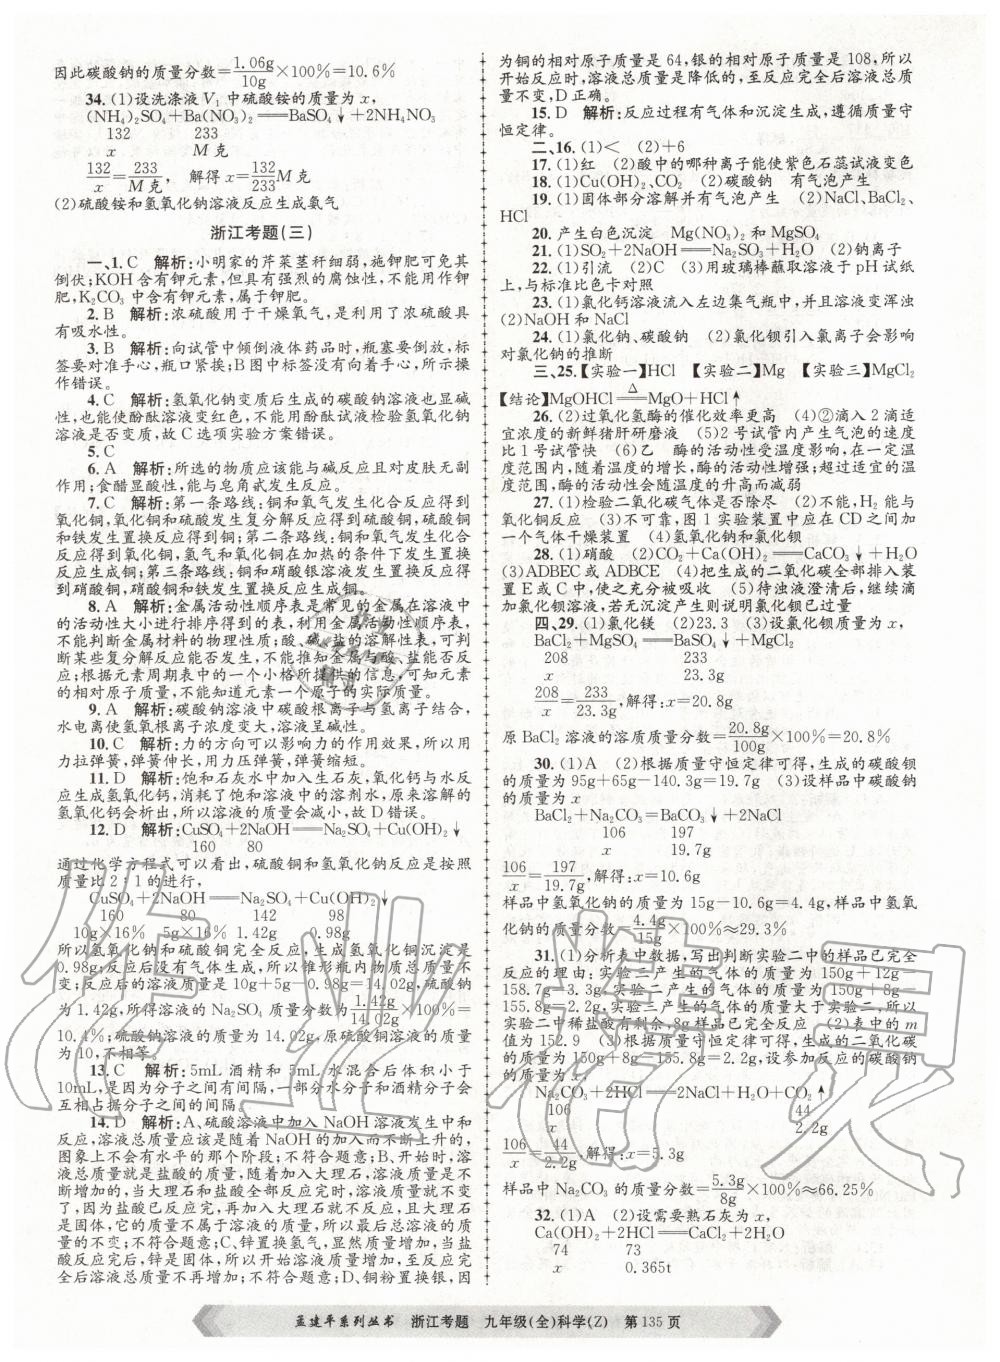 因此碳酸钠的质量分数=1.06g/10g×100%=10.6%
34. (1)设洗涤液V₁中硫酸铵的质量为x,
(NH₄)₂SO₄+Ba(NO₃)₂══BaSO₄↓+2NH₄NO₃
132 233
x M克
132/x=233/M克, 解得x=132/233M克
(2)硫酸铵和氢氧化钠溶液反应生成氨气
浙江考题(三)
一、1. C 解析:小明家的芹菜茎秆细弱,施钾肥可免其
倒伏;KOH含有钾元素,但具有强烈的腐蚀性,不能用作钾
肥,K₂CO₃中含有钾元素,属于钾肥。
2. B 解析:浓硫酸用于干燥氧气,是利用了浓硫酸具
有吸水性。
3. B 解析:向试管中倾倒液体药品时,瓶塞要倒放,标
签要对准手心,瓶口紧挨;B图中标签没有向着手心,所示操
作错误。
4. C 解析:氢氧化钠变质后生成的碳酸钠溶液也显碱
性,也能使酚酞溶液变红色,不能用酚酞试液检验氢氧化钠
溶液是否变质,故C选项实验方案错误。
5. C
6. A 解析:所选的物质应该能与碱反应且对皮肤无副
作用;食醋显酸性,能与皂角甙发生反应。
7. C 解析:第一条路线:铜和氧气发生化合反应得到
氧化铜,氧化铜和硫酸发生复分解反应得到硫酸铜,硫酸铜
和铁发生置换反应得到铜;第二条路线:铜和氧气发生化合
反应得到氧化铜,氢气和氧化铜在加热的条件下发生置换
反应生成铜;第三条路线:铜和硝酸银溶液发生置换反应得
到硝酸铜,硝酸铜和铁发生置换反应生成铜。
8. A 解析:金属活动性顺序表是常见的金属在溶液中
的活动性大小进行排序得到的表,利用金属活动性顺序表,
不能判断金属材料的物理性质;酸、碱、盐的溶解性表,可判
断某些复分解反应能否发生,不能推知金属与酸、盐能否反
应;根据元素周期表中的一个小格所提供的信息,可知元素
的相对原子质量,不能知道元素一个原子的实际质量。
9. A 解析:碳酸钠溶液中碳酸根离子与氢离子结合,
水电离使氢氧根离子浓度变大,溶液呈碱性。
10. C 解析:力的方向可以影响力的作用效果,所以用
力拉弹簧,弹簧伸长,用力压弹簧,弹簧缩短。
11. D 解析:饱和石灰水中加入生石灰,氧化钙与水反
应生成氢氧化钙,消耗了饱和溶液中的溶剂水,原来溶解的
氢氧化钙会析出,所以溶液的质量会减小,故D错误。
12. D 解析:CuSO₄+2NaOH══Na₂SO₄+Cu(OH)₂↓
160 80
通过化学方程式可以看出,硫酸铜和氢氧化钠反应是按照
质量比2:1的进行,
CuSO₄+2NaOH══Na₂SO₄+Cu(OH)₂↓
160 80 142 98
10g×16% 5g×16% 1.42g 0.98g
所以氢氧化钠和硫酸铜完全反应,生成氢氧化铜沉淀是
0.98g;反应后没有气体生成,所以锥形瓶内物质总质量不
变;反应后的溶液质量是10g+5g-0.98g=14.02g,硫酸钠
为1.42g,所得溶液的Na₂SO₄质量分数为1.42g/14.02g×100%=
10.4%;硫酸钠溶液的质量为14.02g,原硫酸铜溶液的质量
为10,不相等。
13. C 解析:5mL酒精和5mL水混合后体积小于
10mL,是因为分子之间有间隔,一部分水分子和酒精分子会
互相占据分子之间的间隔
14. D 解析:A、硫酸溶液中加入NaOH溶液发生中和
反应,溶液总质量应该是随着NaOH的加入而不断上升的,
图象上不会有水平的那个阶段;不符合题意;B、开始时,溶
液总质量就是盐酸的质量,随着加入大理石,溶液质量是不
断增加的,当大理石和盐酸全部反应完时,溶液质量就不变
了,因为盐酸已反应完,再加入大理石就不反应,且大理石
是固体,它的质量不属于溶液的质量,所以最后总溶液的质
量的不变;不符合题意;C、锌置换氢气,显然质量增加,当盐
酸反应完后,锌是固体,所以开始溶液质量增加,至反应完
全后溶液总质量不再增加;不符合题意;D、铜粉置换银,因
为铜的相对原子质量是64,银的相对原子质量是108,所以
开始反应时,溶液总质量是降低的,至反应完全后溶液总质
量不变,D正确。
15. D 解析:反应过程有气体和沉淀生成,遵循质量守
恒定律。
二、16. (1)< (2)+6
17. (1)红 (2)酸中的哪种离子能使紫色石蕊试液变色
18. (1)Cu(OH)₂、CO₂ (2)碳酸钠 有气泡产生
19. (1)固体部分溶解并有气泡产生 (2)NaCl、BaCl₂、
HCl
20. 产生白色沉淀 Mg(NO₃)₂和MgSO₄
21. (1)SO₂+2NaOH══Na₂SO₃+H₂O (2)钠离子
22. (1)引流 (2)C (3)用玻璃棒蘸取溶液于pH试纸
上,与标准比色卡对照
23. (1)氯化钙溶液流入左边集气瓶中,并且溶液变浑浊
(2)NaOH和NaCl
24. (1)氯化钠、碳酸钠 (2)氯化钡引入氯离子会影响
对氯化钠的推断
三、25.【实验一】HCl 【实验二】Mg 【实验三】MgCl₂
【结论】MgOHCl══△══MgO+HCl↑
26. (2)过氧化氢酶的催化效率更高 (4)②滴入2滴适
宜浓度的新鲜猪肝研磨液 (5)2号试管内产生气泡的速度
比1号试管快 (6)乙 酶的活动性受温度影响,在一定温
度范围内,随着温度的增长,酶的活动性增强;超过适宜的温
度范围,酶的活动性会随温度的升高而减弱
27. (1)检验二氧化碳气体是否除尽 (2)不能,H₂能与
氧化铜反应 (3)不可靠,图1实验装置中应在CD之间加
一个气体干燥装置 (4)氢氧化钠和氯化钡
28. (1)硝酸 (2)CO₂+Ca(OH)₂══CaCO₃↓+H₂O
(3)ADBEC或ADBCE (4)把生成的二氧化碳全部排入装
置E或C中,使之充分被吸收 (5)待浊液澄清后,继续滴
加氯化钡溶液,若无沉淀产生则说明氯化钡已过量
四、29. (1)氯化镁 (2)23.3 (3)设氯化钡质量为x,
BaCl₂+MgSO₄══BaSO₄↓+MgCl₂
208 233
x 23.3g
208/x=233/23.3g,解得:x=20.8g
原BaCl₂溶液的溶质质量分数=20.8g/100g×100%=20.8%
30. (1)A (2)根据质量守恒定律可得,生成的碳酸钡
的质量为95g+65g-140.3g=19.7g (3)设样品中碳酸钠
的质量为x
BaCl₂+Na₂CO₃=BaCO₃↓+2NaCl
106 197
x 19.7g
106/x=197/19.7g,解得:x=10.6g
样品中氢氧化钠的质量为15g-10.6g=4.4g,样品中氢氧
化钠的质量分数=4.4g/15g×100%≈29.3%
31. (1)分析表中数据,写出判断实验二中的样品已完全
反应的理由;实验三产生的气体的质量为150g+12g-
158.7g=3.3g,实验二产生的气体的质量为150g+8g-
155.8g=2.2g,实验三产生的气体的质量大于实验二,所以
实验二中稀盐酸有剩余,8g样品已完全反应 (2)表中的m
值为152.9 (3)根据质量守恒定律可得,生成的二氧化碳
的质量为150g+8g-155.8g=2.2g,设参加反应的碳酸钠
的质量为x,
Na₂CO₃+2HCl══2NaCl+H₂O+CO₂↑
106 44
x 2.2g
106/x=44/2.2g,解得:x=5.3g
样品中Na₂CO₃的质量分数=5.3g/8g×100%≈66.25%
32. (1)A (2)设需要熟石灰为x,
Ca(OH)₂+2HCl══CaCl₂+2H₂O
74 73
x 0.365t
孟建平系列丛书 浙江考题 九年级(全)科学(Z) 第135页
作业精灵